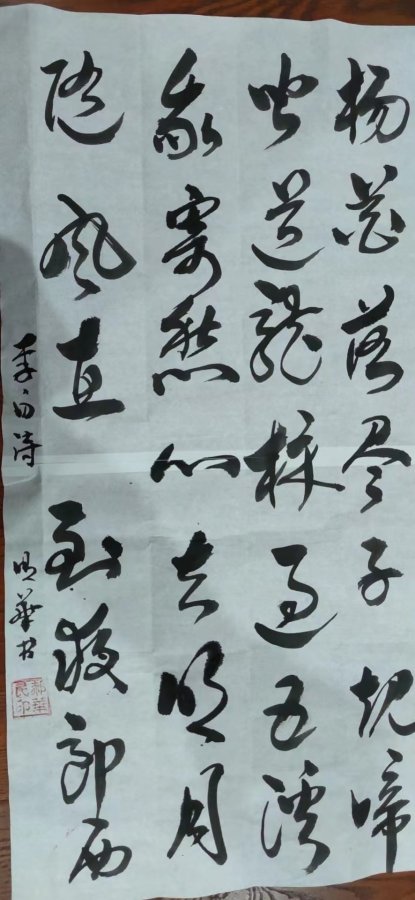 杨花落尽子规啼
闻道龍标过五溪
我寄愁心与明月
随风直到夜郎西
李白诗
明華书